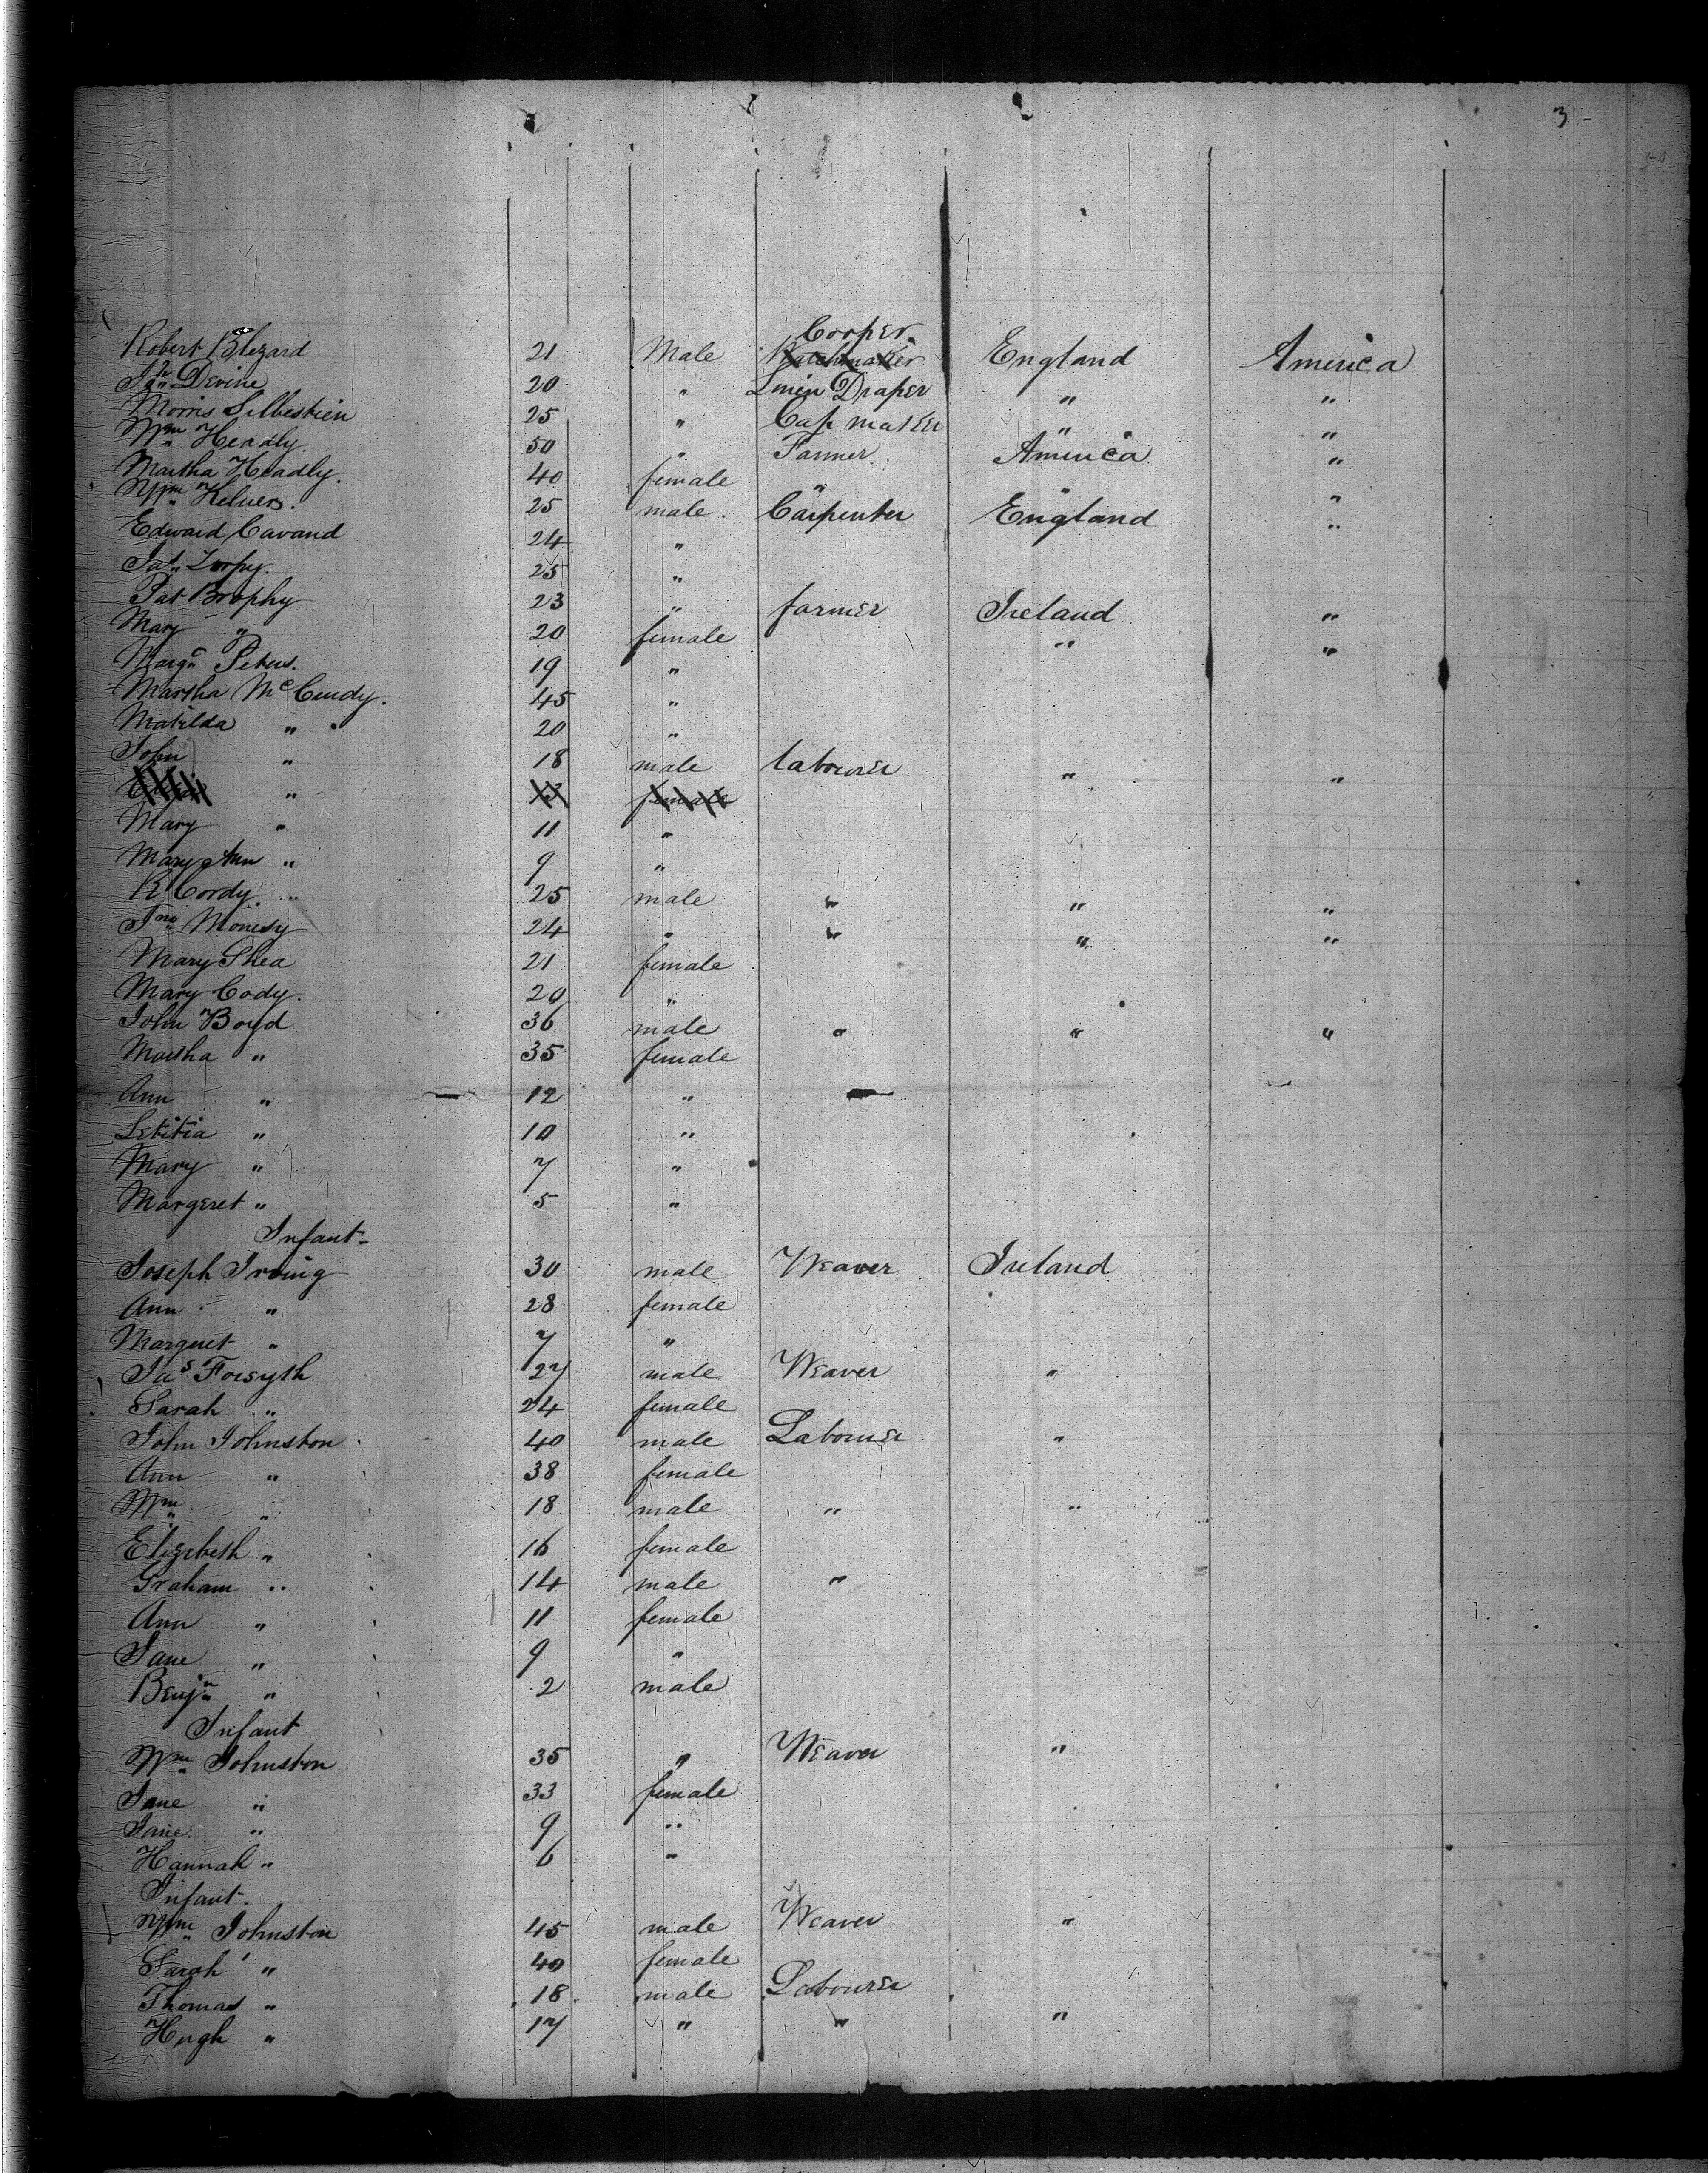 3 -
Cooper.
Robert Blezard 21 Male Watchmaker England America
Jno Devine 20 " Linen Draper " "
Morris Silbestein 25 " Cap maker " "
Wm Headly. 50 " Farmer. America "
Martha Headly. 40 female " " "
Wm Kelners. 25 male. Carpenter England "
Edward Cavand 24 "
Jas 25 "
Pat Brophy 23 " farmer Ireland "
Mary " 20 female " "
Margt Peters. 19 "
Martha McCurdy. 45 "
Matilda " 20 "
John " 18 male labourer " "
" 13 female
Mary " 11 "
Mary Ann " 9 "
R Cordy " 25 male " " "
Jno 24 " " " "
Mary Shea 21 female
Mary Cody. 20 "
John Boyd 36 male " " "
Martha " 35 female
Ann " 12 "
Letitia " 10 "
Mary " 7 "
Margeret " 5 "
Infant -
Joseph Irving 30 male Weaver Ireland
Ann " 28 female
Margeret " 7 "
Jas Forsyth 27 male Weaver "
Sarah " 24 female
John Johnston 40 male Labourer "
Ann " 38 female
Wm " 18 male " "
Elizebeth " 16 female
Graham " 14 male "
Ann " 11 female
Jane " 9 "
Benjn " 2 male
Infant
Wm Johnston 35 " Weaver "
Jane " 33 female
Jane " 9 "
Hannah " 6 "
Infant.
Wm Johnston 45 male Weaver "
Sarah " 40 female
Thomas " 18 male Labourer
Hugh " 17 " " "